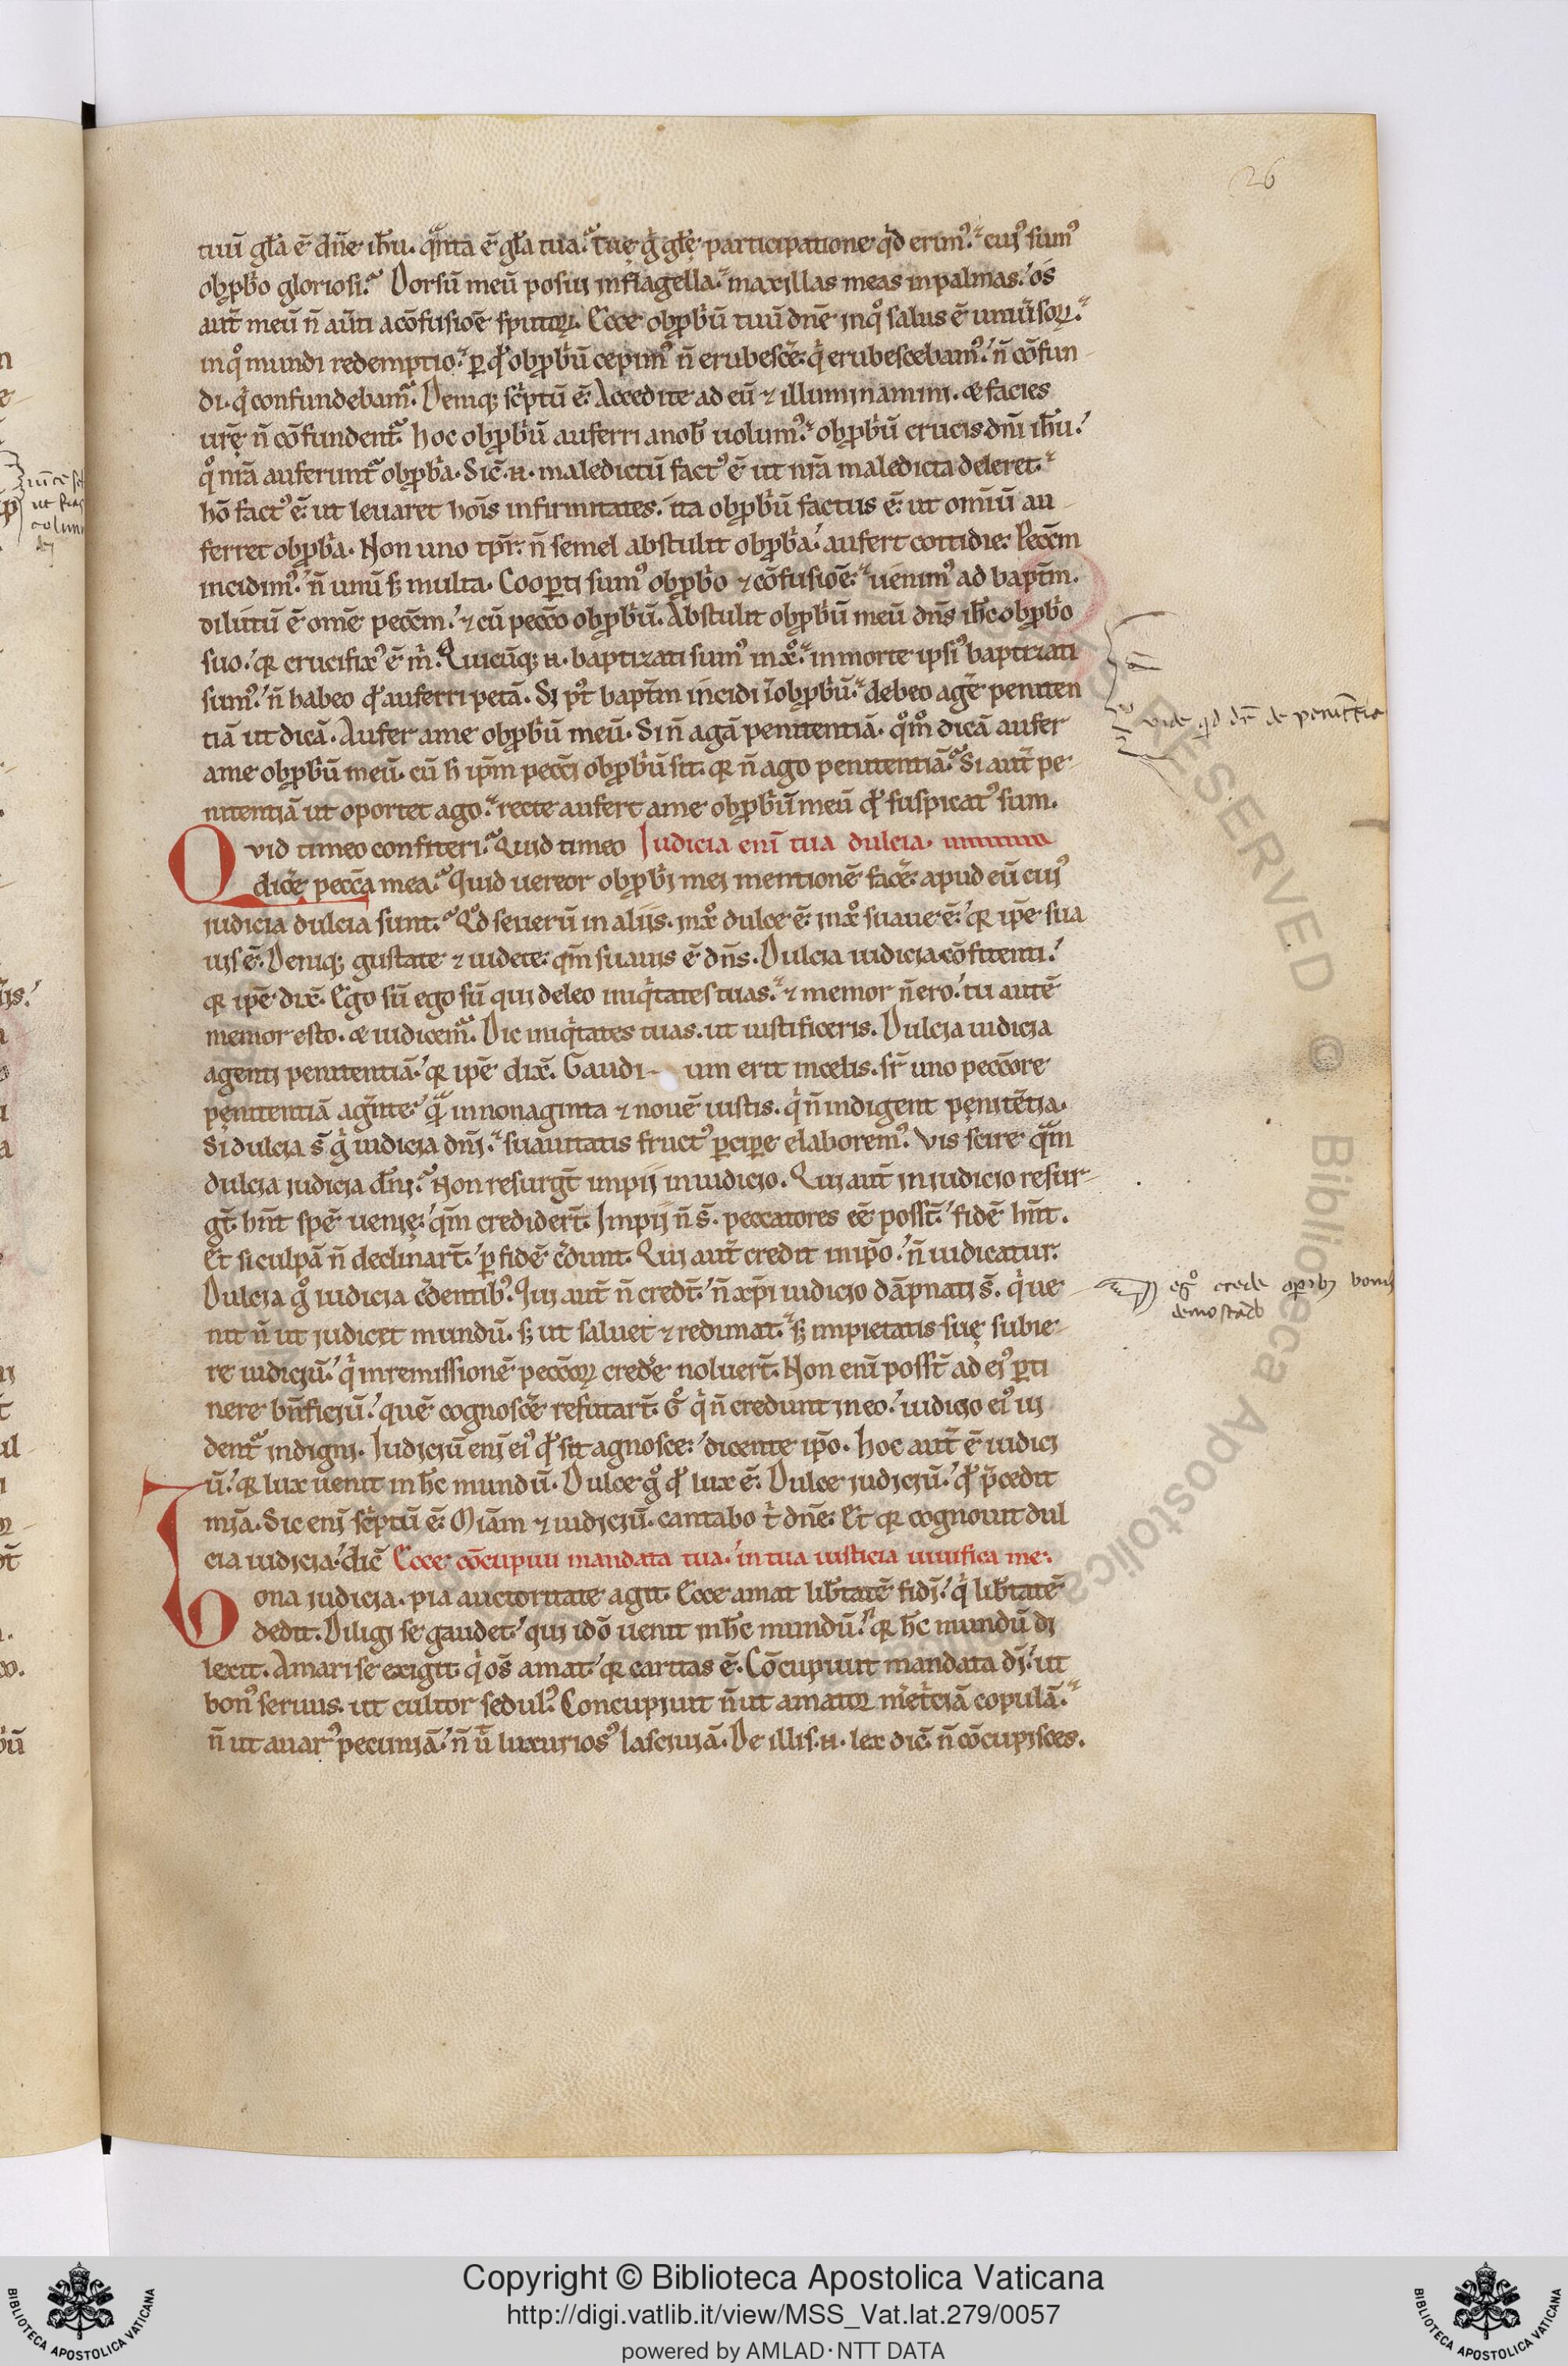 26
tuū gl̄a ē dn̄e ih̄u. qͣnta ē gl̄a tua? Tuę gͥ gl̄ę participatione qͥd erimꝰ? cuiꝰ sumꝰ
obꝓbͥo gloriosi? Dorsū meū posui in flagella. maxillas meas in palmas. os
aut̄ meū n̄ au̅ti a cōfusiōe sputoꝝ. Ecce obꝓbͥū tuū dn̄e in qͦ salus ē uniu̅soꝝ.
in qͦ mundi redemptio. ꝑ qͦ obꝓbͥū cepimꝰ n̄ erubesce̅. qͥ erubescebamꝰ. n̄ cōfun-
di. qͥ confundebamᷣ. Deniqꝫ sc̅ptū ē. Accedite ad eū ⁊ illuminamini. & facies
ur̄ę n̄ cōfundent̄. hoc obꝓbͥū auferri a nob̄ uolumꝰ. obꝓbͥū crucis dn̄i ih̄u.
qͦ nr̄a auferunt̄ obꝓbͥa. Sic̄.n. maledictū factꝰ ē ut nr̄a maledicta deleret.
hō factꝰ ē. ut leuaret hoīs infirmitates. ita obꝓbͥū factus ē. ut omīū au-
ferret obꝓbͥa. Non uno tp̄r. n̄ semel abstulit obꝓbͥa. aufert cottidie. Pecc̄m
incidimꝰ. n̄ unū s; multa. Cooꝑti sumꝰ obꝓbͥo ⁊ cōfusiōe. uenimꝰ ad bapt̄m.
dilutū ē om̄e pecc̄m. ⁊ cū pecc̄o obꝓbͥū. Abstulit obꝓbͥū meū dn̄s ih̄c obꝓbͥo
suo. qꝛ crucifixꝰ ē m̅. Quicūqꝫ.n. baptizati sumꝰ in xͦ. in morte ipsiꝰ baptizati
sumꝰ. n̄ habeo qͦ auferri petā. Si pꝰt bapt̄m incidi ī obꝓbͥū. debeo age̅ peniten
tiā ut dicā. Aufer a me obꝓbͥū meū. Si n̄ agā penitentiā. qͦmͦ dicā aufer
a me obꝓbͥū meū. cū h̄ ip̄m pecc̄i obꝓbͥū sit. qꝛ n̄ ago penitentiā? Si aut̄ pe-
nitentiā ut oportet ago. recte aufert a me obꝓbͥū meū qͦ suspicatꝰ sum.
Qvid timeo confiteri? Quid timeo Iudicia enī tua dulcia.
dice̅ pecc̄a mea? Quid uereor obꝓbͥi mei mentionē face̅. apud eū cuiꝰ
iudicia dulcia sunt? Qͦd seuerū in aliis. in xͦ dulce ē. in xͦ suaue ē. qꝛ ip̄e sua
uis ē. Deniqꝫ gustate ⁊ uidete. qm̄ suauis ē dn̄s. Dulcia iudicia cōfitenti.
qꝛ ip̄e dix̄. Ego sū ego sū qui deleo iniqͥtates tuas. ⁊ memor n̄ ero. tu autē
memor esto. & iudicemᷣ. Dic iniqͥtates tuas. ut iustificeris. Dulcia iudicia
agenti penitentiā. qꝛ ip̄e dix̄. Gaudi-um erit in celis. sr̄ uno pecc̄ore
pęnitentiā ag̅nte. qͣ in nonaginta ⁊ nouē iustis. qͥ n̄ indigent pęnitētia.
Si dulcia s̄ gͥ iudicia dn̄i. suauitatis fructꝰ ꝑciꝑe elaboremꝰ. Vis scire qͣm
dulcia iudicia dn̄i? Non resurgt̄ impii in iudicio. Qui aut̄ in iudicio resur-
gt̄. hn̄t spē uenię. qm̄ credidert̄. Impii n̄ s̄. peccatores eē posst̄. fidē hn̄t.
Et si culpā n̄ declinart̄. ꝑ fidē c̅dunt. Qui aut̄ credit in ip̄o. n̄ iudicatur.
Dulcia gͦ iudicia c̅dentibꝰ. Qui aut̄ n̄ credt̄. n̄ xp̄i iudicio dāpnati s̄. qͥ ue-
nit n̄ ut iudicet mundū. s; ut saluet ⁊ redimat. s; impietatis suę subie-
re iudiciū. qͥ in remissionē pecc̄oꝝ crede̅ noluert̄. Non enī posst̄ ad eiꝰ ꝑti
nere bn̄ficiū. quē cognosce̅ refutart̄. Gͦ qͥ n̄ credunt in eo. iudicio eiꝰ ui
dent̄ indigni. Iudiciū enī eiꝰ qͦ sit agnosce. dicente ip̄o. hoc aut̄ ē iudici
ū. qꝛ lux uenit in h̄c mundū. Dulce gͦ qͦ lux ē. Dulce iudiciū. qͦ p̅cedit
mīa. Sic enī sc̅ptū ē. Mīam ⁊ iudiciū. cantabo t̅ dn̄e. Et qꝛ cognouit dul
cia iudicia. dic̄ Ecce cōcupiui mandata tua. in tua iusticia uiuifica me.
Bona iudicia. pia auctoritate agit. Ecce amat lib̄tatē fidī. qͥ lib̄tatē
dedit. Diligi se gaudet. qui idō uenit in h̄c mundū. qꝛ h̄c mundū di
lexit. Amari se exigit. qͥ os̄ amat. qꝛ caritas ē. Cōcupiuit mandata dī. ut
bonꝰ seruus. ut cultor sedulꝰ. Concupiuit n̄ ut amator me̅tͥciā copulā.
n̄ ut auarꝰ pecuniā. n̄ ū luxuriosꝰ lasciuiā. De illis.n. lex dic̄. n̄ cōcupisces.
vide qd dr̄ de penitēcia
gͦ crede oꝑibꝫ bonis
Copyright © Biblioteca Apostolica Vaticana
http://digi.vatlib.it/view/MSS_Vat.lat.279/0057
powered by AMLAD·NTT DATA
BIBLIOTECA APOSTOLICA VATICANA
BIBLIOTECA APOSTOLICA VATICANA